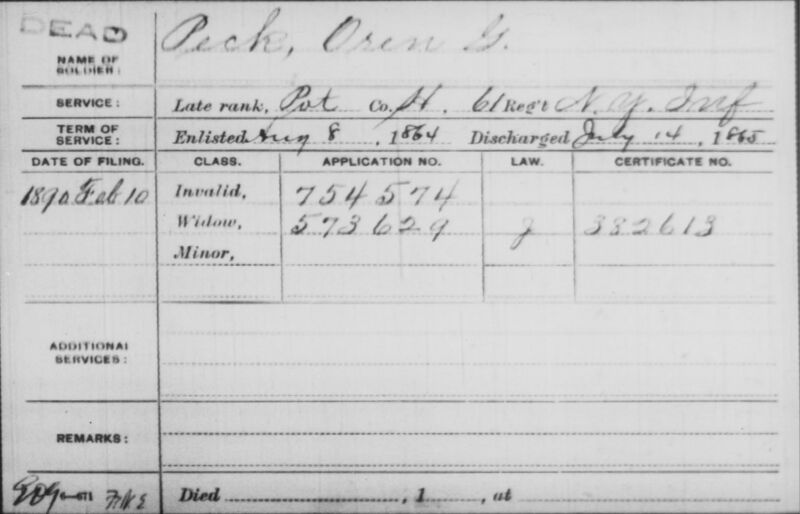 DEAD
NAME OF SOLDIER:
Peck, Oren G.
SERVICE:
Late rank, Pvt Co. H, 61 Reg't N.Y. Inf
TERM OF SERVICE:
Enlisted Aug 8, 1864 Discharged July 14, 1865
DATE OF FILING. CLASS. APPLICATION NO. LAW. CERTIFICATE NO.
1890 Feb 10 Invalid, 754574
Widow, 573629 382613
Minor,
ADDITIONAL SERVICES:
REMARKS:
Died , 1 , at